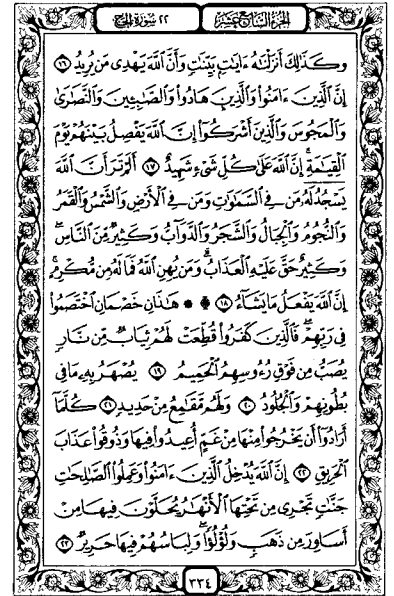 الجزء السابع عشر
٢٢ سورة الحج
وَكَذَٰلِكَ أَنزَلْنَٰهُ ءَايَٰتٍۭ بَيِّنَٰتٍ وَأَنَّ ٱللَّهَ يَهْدِى مَن يُرِيدُ ١٦
إِنَّ ٱلَّذِينَ ءَامَنُوا۟ وَٱلَّذِينَ هَادُوا۟ وَٱلصَّٰبِـِٔينَ وَٱلنَّصَٰرَىٰ
وَٱلْمَجُوسَ وَٱلَّذِينَ أَشْرَكُوٓا۟ إِنَّ ٱللَّهَ يَفْصِلُ بَيْنَهُمْ يَوْمَ
ٱلْقِيَٰمَةِ ۚ إِنَّ ٱللَّهَ عَلَىٰ كُلِّ شَىْءٍ شَهِيدٌ ١٧ أَلَمْ تَرَ أَنَّ ٱللَّهَ
يَسْجُدُ لَهُۥ مَن فِى ٱلسَّمَٰوَٰتِ وَمَن فِى ٱلْأَرْضِ وَٱلشَّمْسُ وَٱلْقَمَرُ
وَٱلنُّجُومُ وَٱلْجِبَالُ وَٱلشَّجَرُ وَٱلدَّوَآبُّ وَكَثِيرٌ مِّنَ ٱلنَّاسِ ۖ
وَكَثِيرٌ حَقَّ عَلَيْهِ ٱلْعَذَابُ ۗ وَمَن يُهِنِ ٱللَّهُ فَمَا لَهُۥ مِن مُّكْرِمٍ ۚ
إِنَّ ٱللَّهَ يَفْعَلُ مَا يَشَآءُ ١٨ ۩ ۞ هَٰذَانِ خَصْمَانِ ٱخْتَصَمُوا۟
فِى رَبِّهِمْ ۖ فَٱلَّذِينَ كَفَرُوا۟ قُطِّعَتْ لَهُمْ ثِيَابٌ مِّن نَّارٍ
يُصَبُّ مِن فَوْقِ رُءُوسِهِمُ ٱلْحَمِيمُ ١٩ يُصْهَرُ بِهِۦ مَا فِى
بُطُونِهِمْ وَٱلْجُلُودُ ٢٠ وَلَهُم مَّقَٰمِعُ مِنْ حَدِيدٍ ٢١ كُلَّمَآ
أَرَادُوٓا۟ أَن يَخْرُجُوا۟ مِنْهَا مِنْ غَمٍّ أُعِيدُوا۟ فِيهَا وَذُوقُوا۟ عَذَابَ
ٱلْحَرِيقِ ٢٢ إِنَّ ٱللَّهَ يُدْخِلُ ٱلَّذِينَ ءَامَنُوا۟ وَعَمِلُوا۟ ٱلصَّٰلِحَٰتِ
جَنَّٰتٍ تَجْرِى مِن تَحْتِهَا ٱلْأَنْهَٰرُ يُحَلَّوْنَ فِيهَا مِنْ
أَسَاوِرَ مِن ذَهَبٍ وَلُؤْلُؤًا ۖ وَلِبَاسُهُمْ فِيهَا حَرِيرٌ ٢٣
٣٣٤